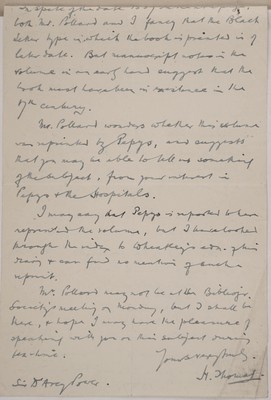 In spite of the date
both Mr. Pollard and I fancy that the Black
Letter type in which the book is printed is of
later date. But manuscript notes in the
volume in an early hand suggest that the
book must have been in existence in the
17th century.
Mr. Pollard wonders whether this volume
was reprinted by Pepys, and suggests
that you may be able to tell us something
of the subject, from your interest in
Pepys & the Hospitals.
I may say that Pepys is reported to have
reprinted the volume, but I have looked
through the index to Wheatley's edn. of his
diary & can find no mention of such a
reprint.
Mr. Pollard may not be at the Bibliog.
Society's meeting on Monday, but I shall be
there, & hope I may have the pleasure of
speaking with you on this subject during
tea-time.
Yours very truly,
H. Thomas.
Sir D'Arcy Power.